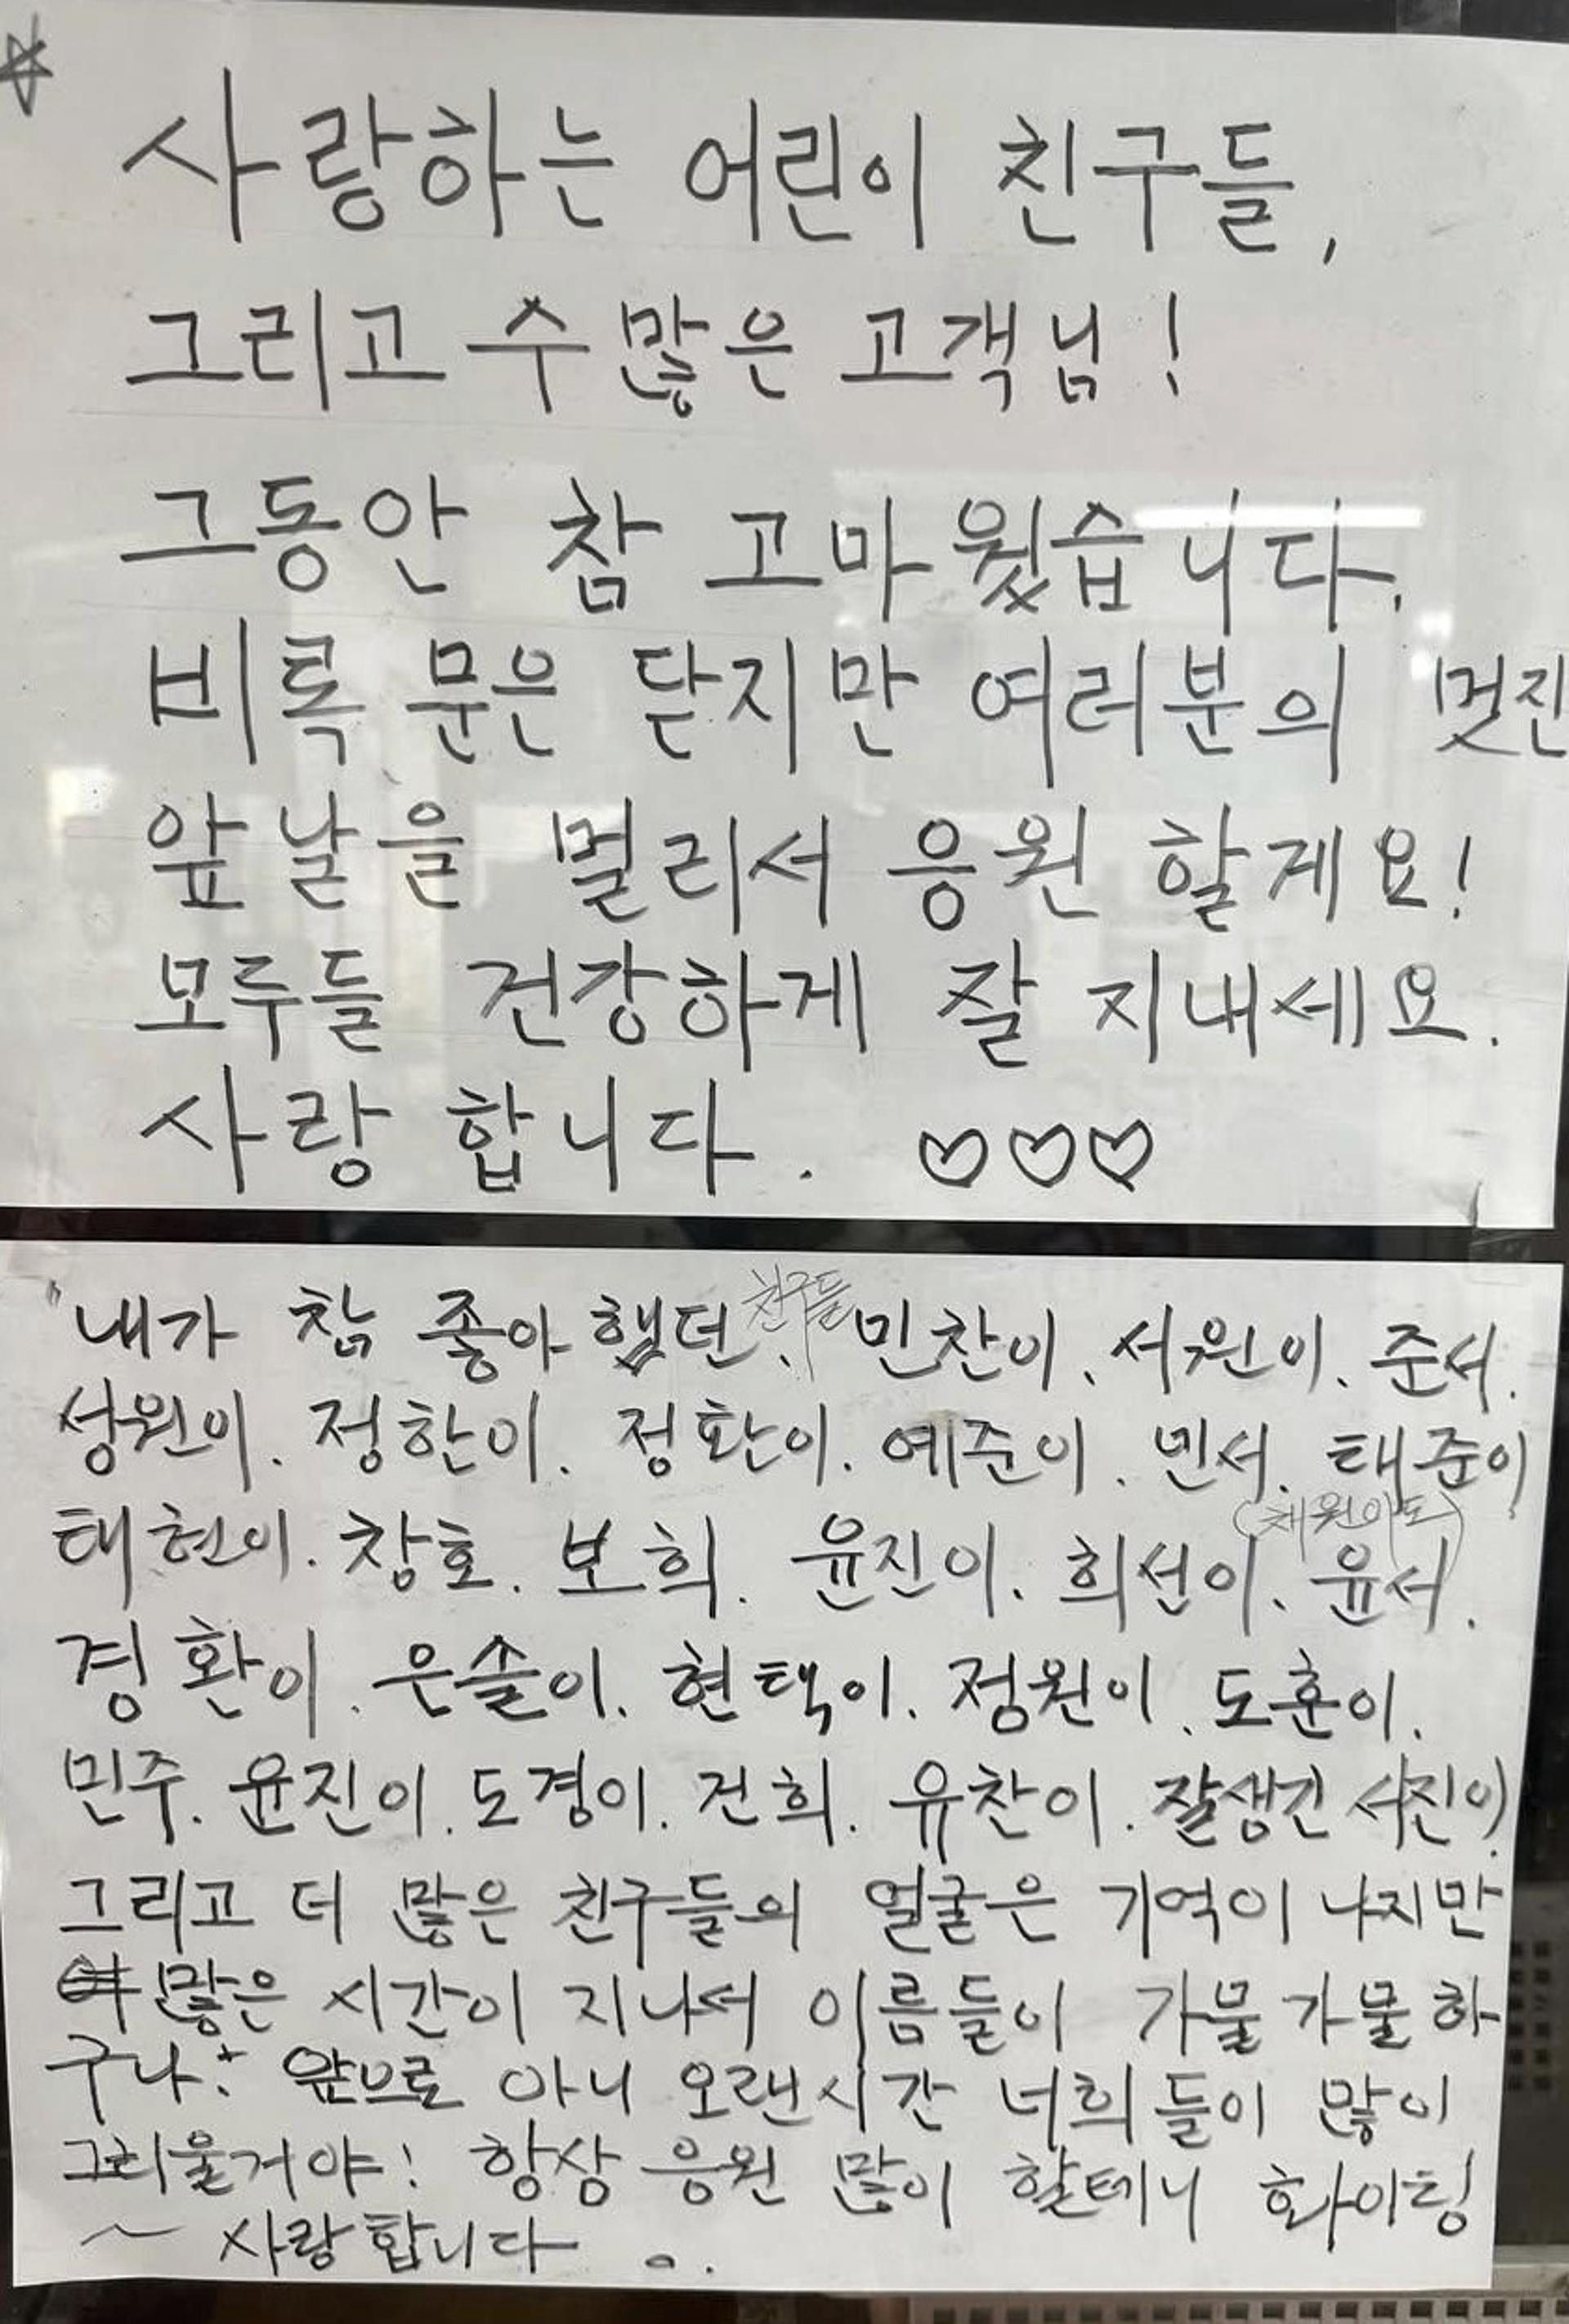 사랑하는 어린이 친구들,
그리고 수많은 고객님!
그동안 참 고마웠습니다.
비록 문은 닫지만 여러분의 멋진
앞날을 멀리서 응원 할게요!
모두들 건강하게 잘 지내세요.
사랑 합니다. ♡♡♡
내가 참 좋아했던 친구들 민찬이. 서원이. 준서.
성원이. 정한이. 정환이. 예준이. 민서. 태준이
(채원이도)
태현이. 창호. 보희. 윤진이. 희선이. 윤서.
경환이. 은솔이. 현택이. 정원이. 도훈이.
민주. 윤진이. 도경이. 건희. 유찬이. 잘생긴 서진이
그리고 더 많은 친구들의 얼굴은 기억이 나지만
많은 시간이 지나서 이름들이 가물가물하
구나. 앞으로 아니 오랜시간 너희들이 많이
그리울거야! 항상 응원 많이 할테니 화이팅
~ 사랑합니다